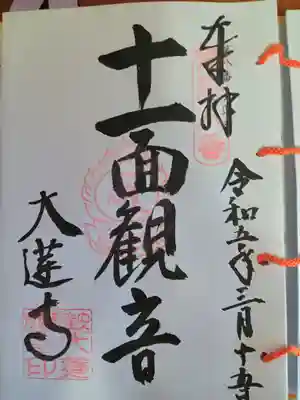 奉拝
令和五年三月十五日
十一面観音
大蓮寺